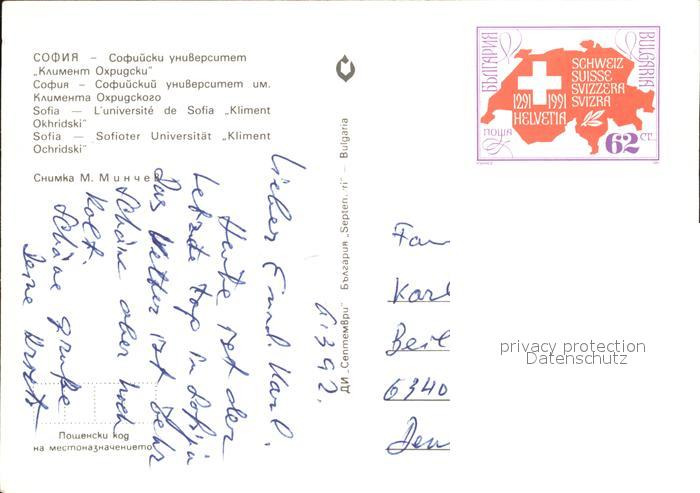 СОФИЯ – Софийски университет
„Климент Охридски“
София – Софийский университет им.
Климента Охридского
Sofia — L'université de Sofia „Kliment
Okhridski“
Sofia — Sofioter Universität „Kliment
Ochridski“
Снимка М. Минчев
Пощенски код
на местоназначението
ДИ „Септември“ България „Septemvri“ – Bulgaria
6 III 92.
Lieber Freund Karl.
Heute ist der
letzte Tag in Sofia
Das Wetter ist sehr
Schöne aber noch
kalt.
Schöne Grüße
БЪЛГАРИЯ
BULGARIA
SCHWEIZ
SUISSE
SVIZZERA
SVIZRA
1291 1991
HELVETIA
ПОЩА
62 СТ.
Fam
Karl
Beil
6340
Den
privacy protection
Datenschutz